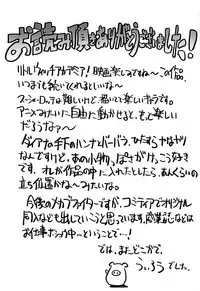 お読み頂きありがとうございました!
リトルウィッチアカデミア!映画楽しみですね〜この作品、
いつまでも続いてくれるといいな〜
スーシィ・ロッテは難しいけど、描いてて楽しいキャラです。
アーニみたいに自由に動かせると、もっと楽しい
だろうなァ〜
ダイアナの手下のハンナ・バーバラ、ひたすら
なんですけど、あの小物っぽさがけっこう好き
です。オレが作品の中に入れたとしたら、あんくらいの
立ち位置かな〜みたいな。
今後のメカブライターですが、コミティアでオリジナル
同人なども出していこうと思っています。商業誌などは
お仕事ナショウ中…ということで…!
では、またどこかで。
でした。